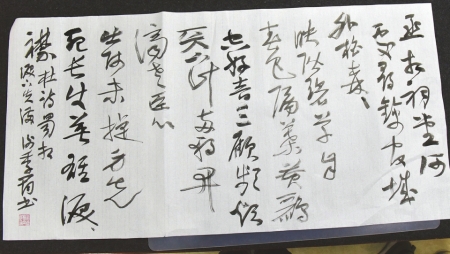 丞相祠堂何
處尋錦官城
外柏森々
映階碧草自
春色隔葉黃鸝
空好音三顧頻煩
天下計兩朝開
濟老臣心
出師未捷身先
死長使英雄淚滿
襟杜詩蜀相
書